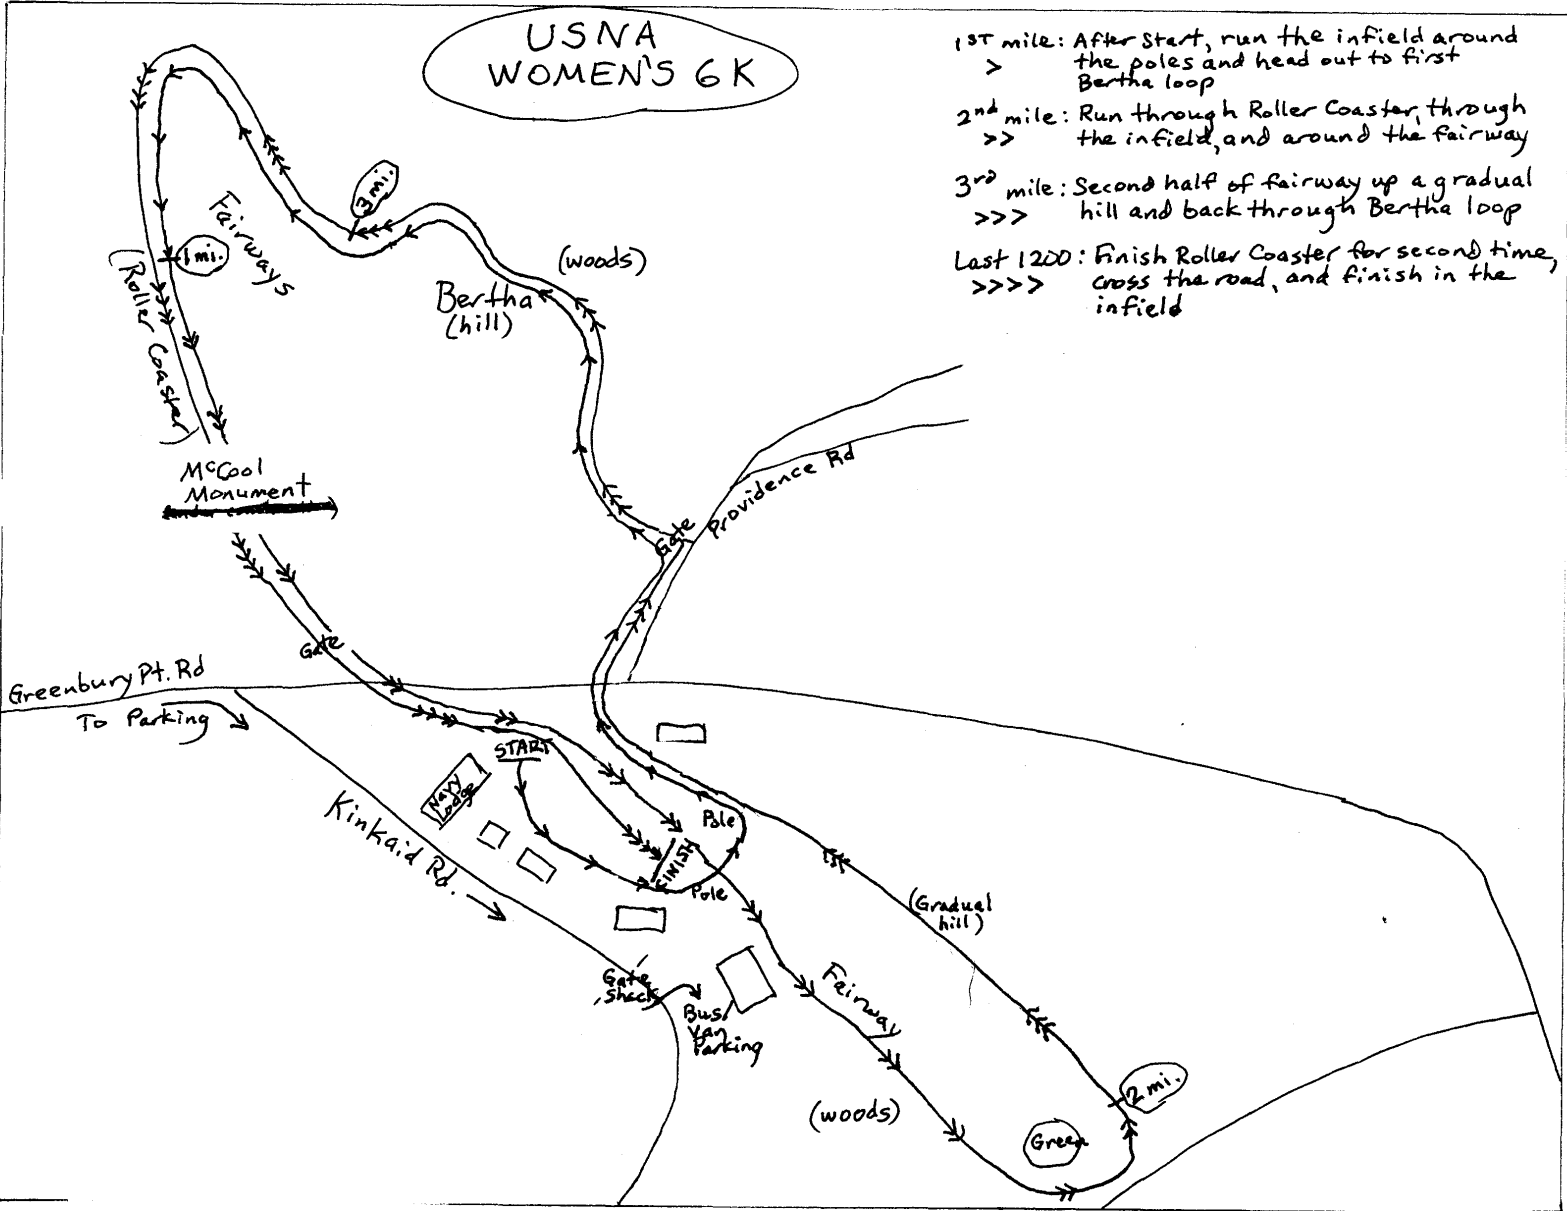 USNA
WOMEN'S 6K
1ST mile: After Start, run the infield around
> the poles and head out to first
Bertha loop
2nd mile: Run through Roller Coaster, through
>> the infield, and around the fairway
3rd mile: Second half of fairway up a gradual
>>> hill and back through Bertha loop
Last 1200: Finish Roller Coaster for second time,
>>>> cross the road, and finish in the
infield
3 mi.
Fairways
1 mi.
(Roller Coaster)
(woods)
Bertha
(hill)
McCool
Monument
Providence Rd
Gate
Gate
Greenbury Pt. Rd
To Parking
START
Navy
Lodge
Kinkaid Rd.
Pole
FINISH
Pole
(Gradual
hill)
Gate
Shack
Bus/
Van
Parking
Fairway
2 mi.
(woods)
Green